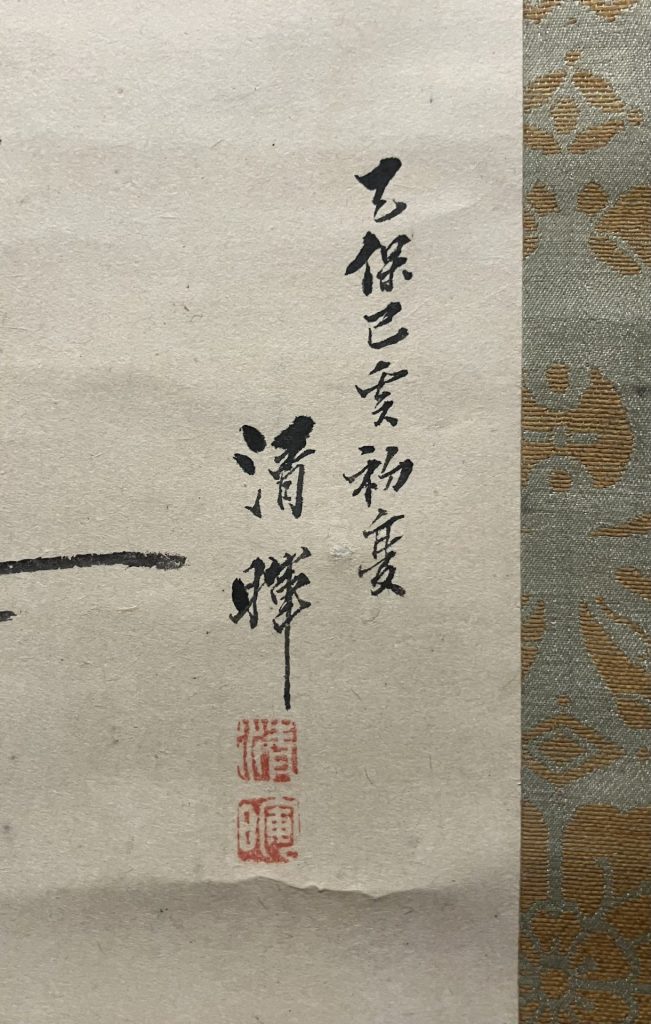 天保己亥初夏
清暉
清
暉